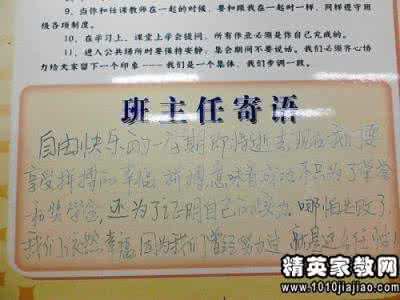 9、当你和任课教师在一起的时候,要和跟我在一起时一样,同样遵守班
级各项制度。
10、在学习上,课堂上学会提问,所有作业必须是你自己完成的。
11、进入公共场所时要保持安静;集会期间不要说话。我们必须齐心协
力给大家留下一个印象——我们是一个集体,我们步调一致。
班主任寄语
自由快乐的一星期即将逝去,现在我们要
享受拼搏的幸福,拼搏意味着成功,不只为了荣誉
和奖学金,还为了证明自己的努力。哪怕失败了,
我们仍然幸福,因为我们曾经努力过,就是这么任性!
精英家教网
www.1010jiajiao.com